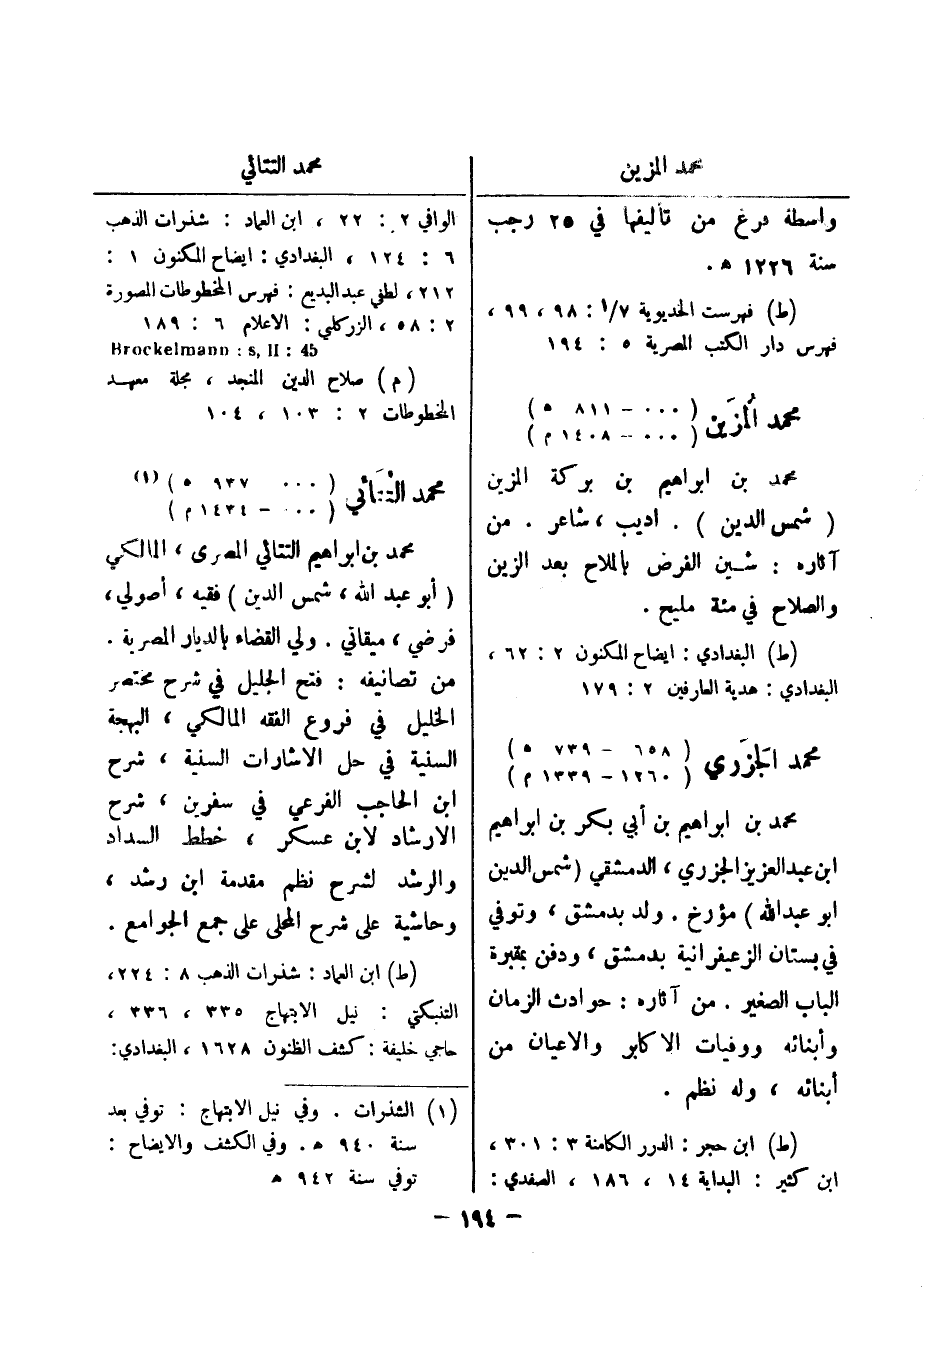 محمد المزين
واسطة درغ من تأليفها في ٢٥ رجب
سنة ١٢٢٦ ه.
(ط) فهرست الخديوية ١/٧ : ٩٨ ، ٩٩ ،
فهرس دار الكتب المصرية ٥ : ١٩٤
محمد المُزَين ( ٠٠٠ - ٨١١ ه )
( ٠٠٠ - ١٤٠٨ م )
محمد بن ابراهيم بن بركة المزين
( شمس الدين ) . اديب ، شاعر . من
آثاره : شـين الفرض بالملاح بعد الزين
والصلاح في مئة مليح .
(ط) البغدادي : ايضاح المكنون ٢ : ٦٢ ،
البغدادي : هدية العارفين ٢ : ١٧٩
محمد الجَزَري ( ٦٥٨ - ٧٣٩ ه )
( ١٢٦٠ - ١٣٣٩ م )
محمد بن ابراهيم بن أبي بكر بن ابراهيم
ابن عبد العزيز الجزري ، الدمشقي (شمس الدين
ابو عبدالله ) مؤرخ . ولد بدمشق ، وتوفي
في بستان الزعيفرانية بدمشق ، ودفن بمقبرة
الباب الصغير . من آثاره : حوادث الزمان
وأبنائه ووفيات الاكابر والاعيان من
أبنائه ، وله نظم .
(ط) ابن حجر : الدرر الكامنة ٣ : ٣٠١ ،
ابن كثير : البداية ١٤ ، ١٨٦ ، الصفدي :
محمد التتائي
الوافي ٢ : ٢٢ ، ابن العماد : شذرات الذهب
٦ : ١٢٤ ، البغدادي : ايضاح المكنون ١ :
٢١٢ ، لطفي عبد البديع : فهرس المخطوطات المصورة
٢ : ٥٨ ، الزركلي : الاعلام ٦ : ١٨٩
Brockelmann : s, II : 45
(م) صلاح الدين المنجد ، مجلة معهد
المخطوطات ٢ : ١٠٣ ، ١٠٤
محمد التَّتَائي ( ٠٠٠ ٩٣٧ ه ) (١)
( ٠٠٠ - ١٤٣٤ م )
محمد بن ابراهيم التتائي المصري ، المالكي
( أبو عبد الله ، شمس الدين ) فقيه ، أصولي ،
فرضي ، ميقاتي . ولي القضاء بالديار المصرية .
من تصانيفه : فتح الجليل في شرح مختصر
الخليل في فروع الفقه المالكي ، البهجة
السنية في حل الاشارات السنية ، شرح
ابن الحاجب الفرعي في سفرين ، شرح
الارشاد لابن عسكر ، خطط السداد
والرشد لشرح نظم مقدمة ابن رشد ،
وحاشية على شرح المحلى على جمع الجوامع .
(ط) ابن العماد : شذرات الذهب ٨ : ٢٢٤ ،
التنبكتي : نيل الابتهاج ٣٣٥ ، ٣٣٦ ،
حاجي خليفة : كشف الظنون ١٦٢٨ ، البغدادي :
(١) الشذرات . وفي نيل الابتهاج : توفي بعد
سنة ٩٤٠ ه . وفي الكشف والايضاح :
توفي سنة ٩٤٢ ه
- ١٩٤ -